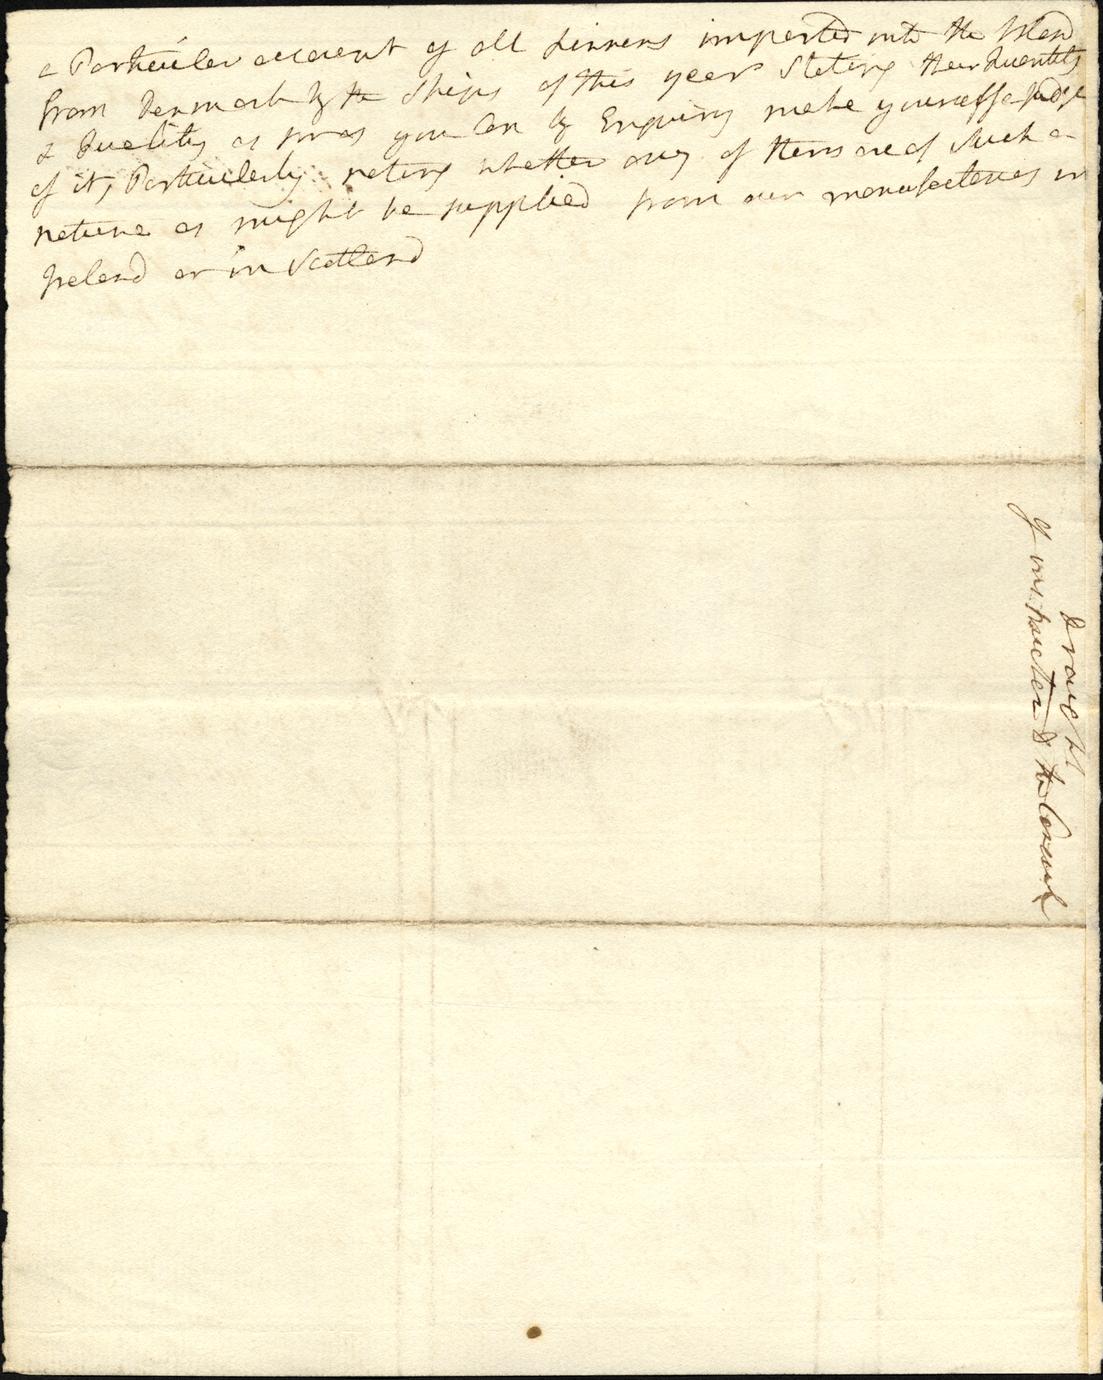 a Particular account of all Linnens imported into the Island
from Denmark by the Ships of this year Stating their Quantity
& Quality as far as you Can by Enquiry make yourself a judge
of it, Particularly noting whether any of them are of Such a
nature as might be supplied from our manufactures in
Ireland or in Scotland
Draught
of instructions to the Consul